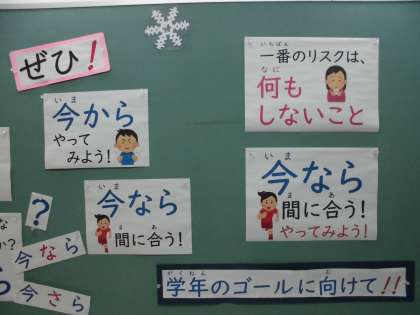 ぜひ!
いま
今から
やって
みよう!
いま
今なら
ま あ
間に合う!
?
か?
今なら
今さら
いちばん
一番のリスクは、
なに
何も
しないこと
いま
今なら
ま あ
間に合う!
やってみよう!
がくねん む
学年のゴールに向けて!!